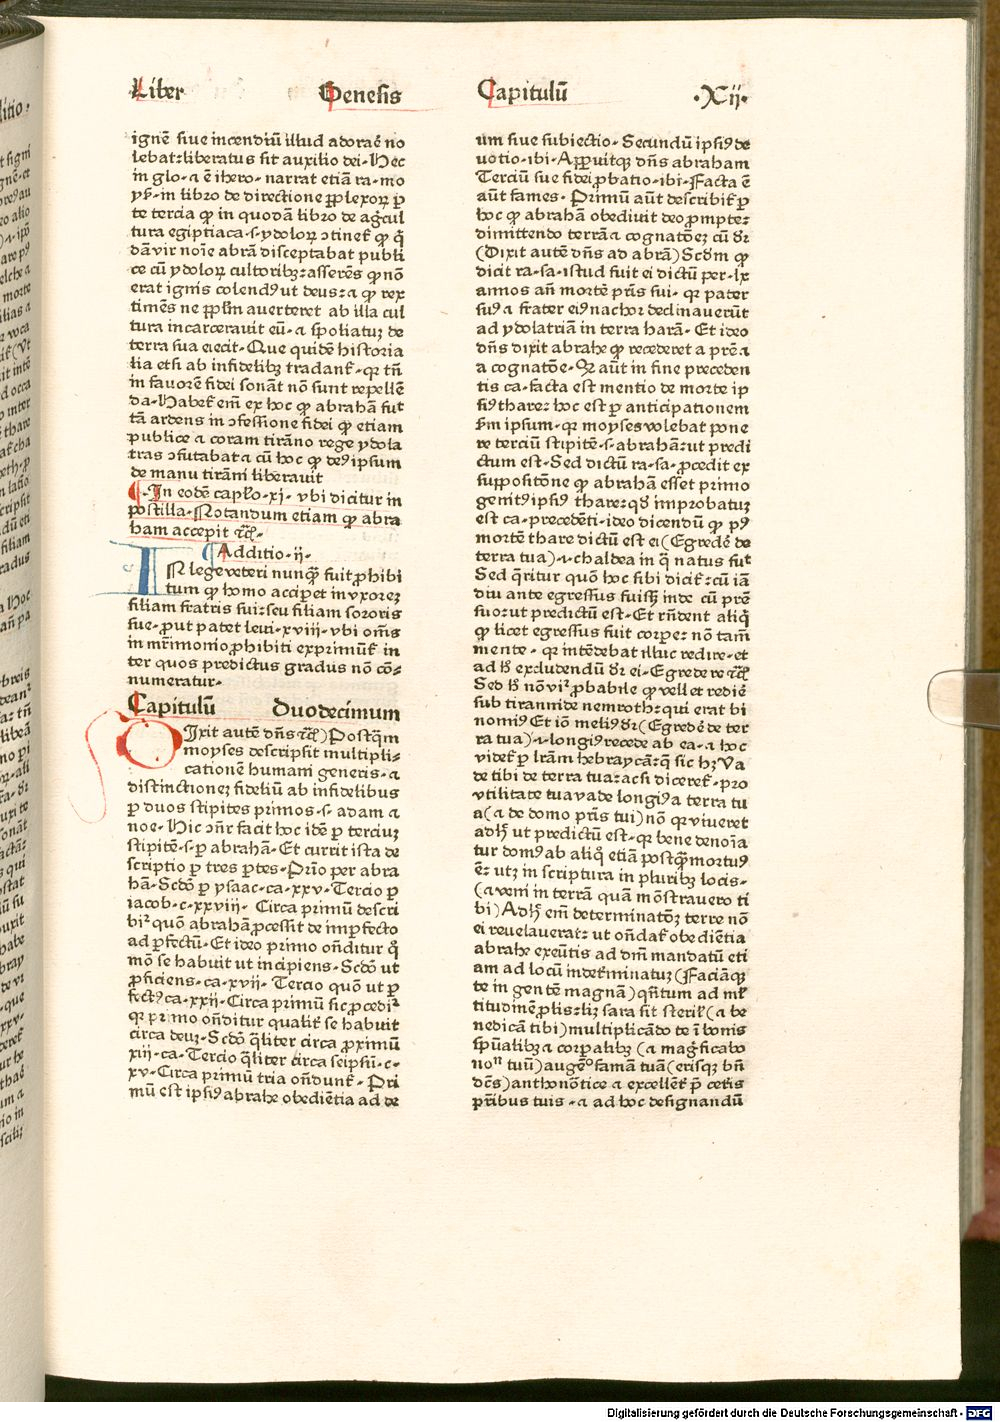 Liber Genesis Capitulū ·Xij·
ignē siue incendiū illud adoraē no
lebat: liberatus sit auxilio dei· Hec
in glo· a ē ihero· narrat etiā ra· mo
yſ· in libro de directione ꝑplexoꝝ ꝑ
te tercia ꝙ in quodā libro de agͥcul
tura egiptiaca ·s· ydoloꝝ ↄtinet̉ ꝙ q̄
dā vir noīe abrā disceptabat publi
ce cū ydoloꝝ cultoribꝫ: asserēs ꝙ nō
erat ignis colendꝰ ut deus: a ꝙ rex
timēs ne ꝓplm̄ auerteret ab illa cul
tura incarcerauit eū· a spoliatuꝫ de
terra sua eiecit· Que quidē historia
lia etsi ab infidelibꝫ tradant̉· qꝛ tn̄
in fauorē fidei sonāt nō sunt repellē
da· Habet̉ em̄ ex hoc ꝙ abrahā fuit
tā ardens in ↄfessione fidei ꝙ etiam
publice a coram tirāno rege ydola
tras ↄfutabat a cū hoc ꝙ deꝰ ipsum
de manu tirāni liberauit
¶·In eodē caplo· xj· vbi dicitur in
postilla· Notandum etiam ꝙ abra
ham accepit ꝛc̄·
¶Additio· ij·
IN lege veteri nunqͣ fuit ꝓhibi
tum ꝙ homo acciꝑet in vxoreꝫ
filiam fratris sui: seu filiam sororis
sue· ꝓut patet leui· xviij· vbi oms̄
in mr̄imonio ꝓhibiti exprimūt̉ in
ter quos predictus gradus nō cō⸗
numeratur·
Capitulū Duodecimum
Dixit autē dn̄s ꝛc̄) Postqͣm
moyses descripsit multipli⸗
cationē humani generis· a
distinctioneꝫ fideliū ab infidelibus
ꝑ duos stipites primos ·s· adam a
noe· Hic ↄn̄r facit hoc idē ꝑ terciuꝫ
stipitē ·s· ꝑ abrahā· Et currit ista de
scriptio ꝑ tres ꝑtes· Prīo per abra
hā· Scdō ꝑ ysaac· ca· xxv· Tercio ꝑ
iacob· c· xxviij· Circa primū descri
bit̉ quō abrahā ꝓcessit de imꝑfecto
ad ꝑfectū· Et ideo primo on̄ditur qͦ
mō se habuit ut incipiens· Scdō ut
ꝓficiens· ca· xvij· Tercio quō ut ꝑ
fectꝰ ca· xxij· Circa primū sic ꝓcedit̉
qꝛ primo on̄ditur qualit̉ se habuit
circa deuꝫ· Scdō qͣliter circa ꝓximū
xiij· ca· Tercio qͣliter circa seipsū· c·
xv· Circa primū tria on̄dunt̉· Pri
mū est ipsiꝰ abrahe obediētia ad de
um siue subiectio· Secundū ipsiꝰ de
uotio· ibi· Apꝑuitqꝫ dn̄s abraham
Terciū sue fidei ꝓbatio· ibi· Facta ē
aūt fames· Primū aūt describit̉ ꝑ
hoc ꝙ abrahā obediuit deo ꝓmpte:
dimittendo terrā a cognatōeꝫ cū dr̄
(Dixit autē dn̄s ad abrā) Scdm̄ ꝙ
dicit ra· sa· istud fuit ei dictū per· lx
annos an̄ mortē pr̄is sui· qꝛ pater
suꝰ a frater eiꝰ nachor declinauerūt
ad ydolatriā in terra harā· Et ideo
dn̄s dixit abrahe ꝙ recederet a pr̄e a
a cognatōe· Qꝛ aūt in fine preceden
tis ca· facta est mentio de morte ip
siꝰ thare: hoc est ꝑ anticipationem
ẜm ipsum· qꝛ moyses volebat pone
re terciū stipitē ·s· abrahā: ut predi
ctum est· Sed dictū ra· sa· ꝓcedit ex
suppositōne ꝙ abrahā esset primo
genitꝰ ipsiꝰ thare: qd̉ improbatuꝫ
est ca· precedēti· ideo dicendū ꝙ pꝰ
mortē thare dictū est ei (Egredē de
terra tua) ·i· chaldea in qͣ natus fuit
Sed q̄ritur quō hoc sibi dicit̉: cū iā
diu ante egressus fuisꝫ inde cū prē
suo: ut predictū est· Et rn̄dent aliqͥ
ꝙ licet egressus fuit corꝑe: nō tam̄
mente· qꝛ intēdebat illuc redire· et
ad h̉ excludendū dr̄ ei· Egrede re ꝛc̄
Sed h̉ nō vr̄ ꝓbabile ꝙ vellet redire
sub tirannide nemroth: qui erat bi
nomiꝰ Et iō meliꝰ dr̄ (Egredē de ter
ra tua) ·i· longiꝰ recede ab ea· a hoc
videt̉ ꝑ lr̄am hebraycā: q̄ sic hꝫ Va
de tibi de terra tua: acsi diceret̉· pro
vtilitate tua vade longiꝰ a terra tu
a (a de domo pr̄is tui) nō qꝛ viueret
adhͨ ut predictū est· qꝛ bene denoīa
tur domꝰ ab aliqͦ etiā postqͣ mortuꝰ
ē: utꝫ in scriptura in pluribꝫ locis·
(a veni in terrā quā mōstrauero ti
bi) Adhͨ em̄ determinatōꝫ terre nō
ei reuelauerat: ut on̄dat̉ obediētia
abrahe exeūtis ad dm̄ mandatū eti
am ad locū indet̉minatuꝫ (Faciāqꝫ
te in gentē magnā) qn̄tum ad ml̉
titudinē ꝓlis: lꝫ sara sit steril̉ (a be
nedicā tibi) multiplicādo te ī bonis
spūalibꝫ a corꝑalibꝫ (a magͥficabo
noⁿ tuū) augēdͦ famā tuā (erisqꝫ bn̄
dēs) anthonōtice a excellēt̉ p̄ cet̉is
pr̄ibus tuis· a ad hoc designandū
Digitalisierung gefördert durch die Deutsche Forschungsgemeinschaft - DFG